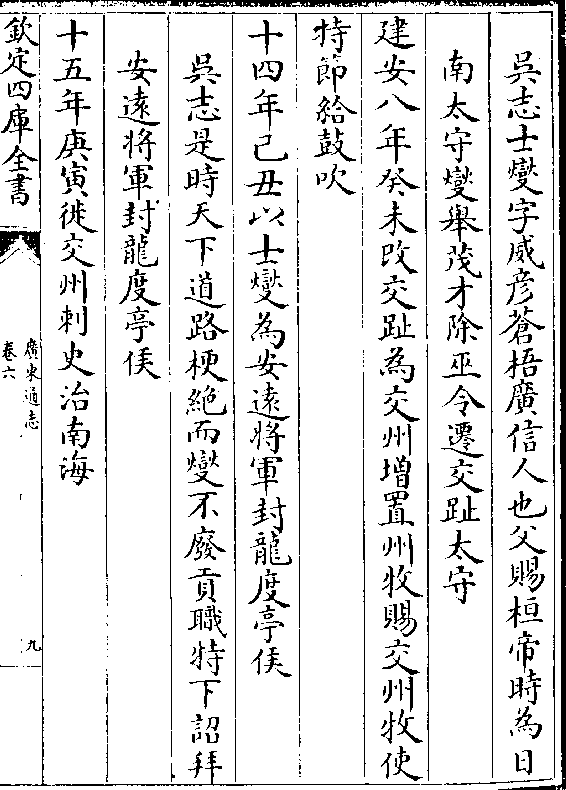 吳志士燮字威彦蒼梧廣信人也父賜桓帝時為日
南太守燮舉茂才除巫令遷交趾太守
建安八年癸未改交趾為交州增置州牧賜交州牧使
持節給鼓吹
十四年己丑以士燮為安遠將軍封龍度亭侯
吳志是時天下道路梗絶而燮不廢貢職特下詔拜
安遠將軍封龍度亭侯
十五年庚寅徙交州刺史治南海
欽定四庫全書
廣東通志
卷六
九